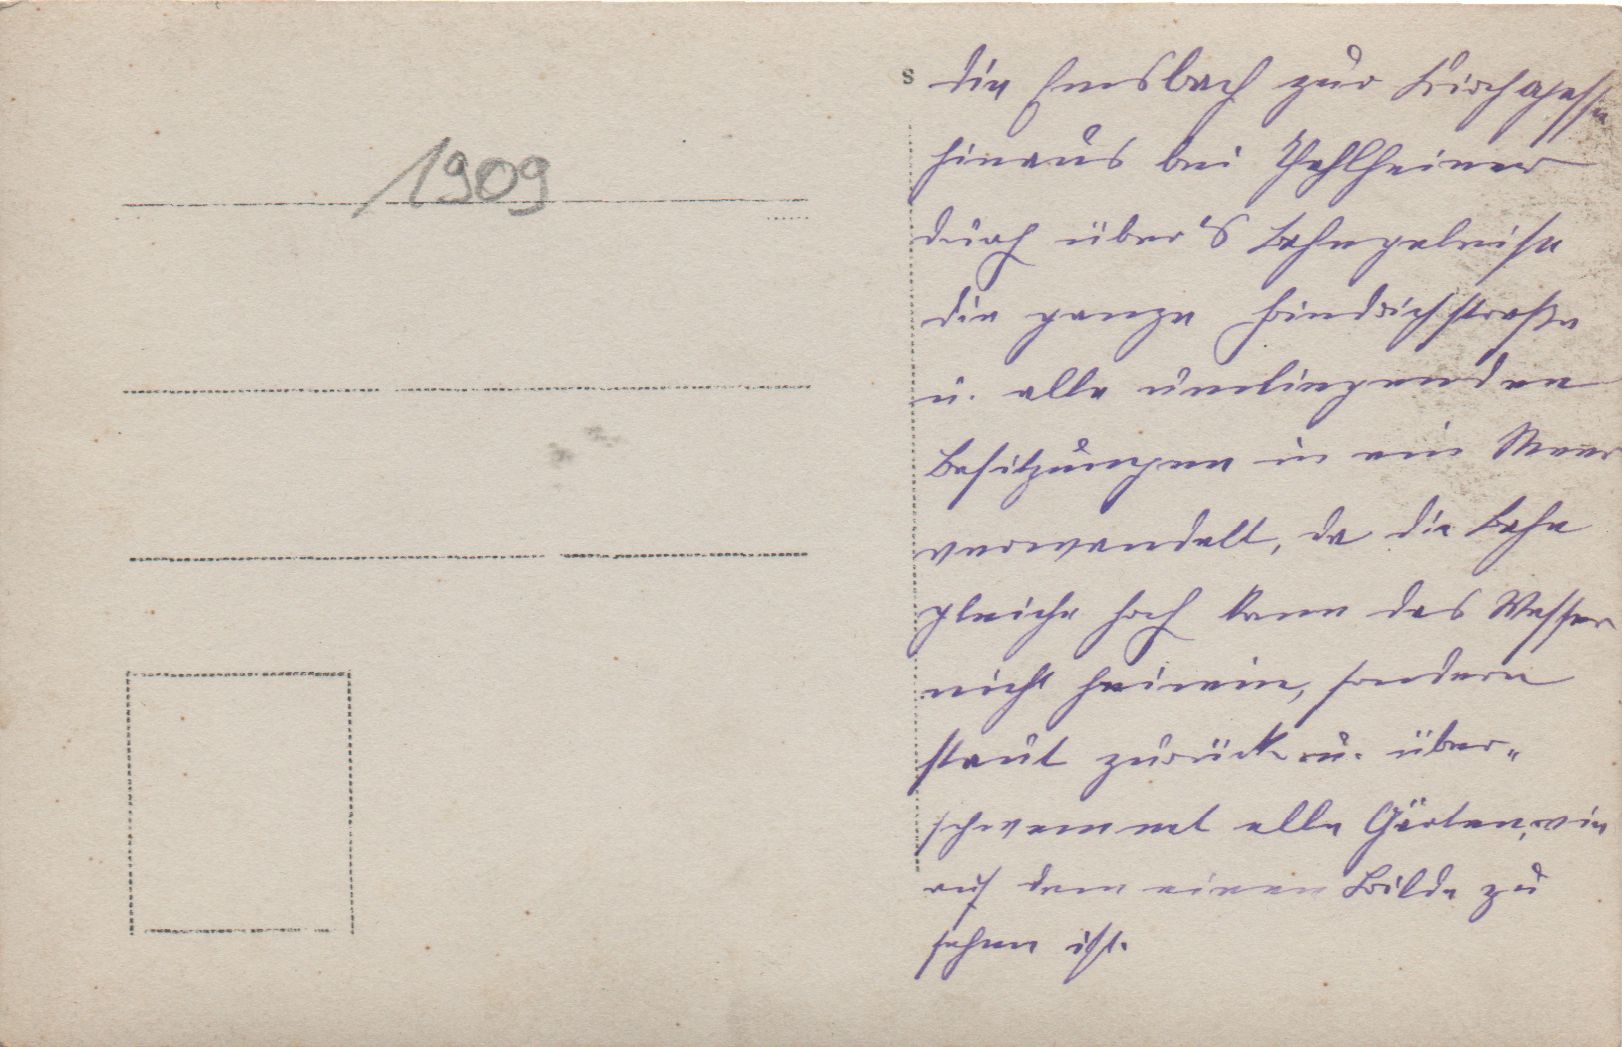 1909
s
die Emsbach zur Kirchgasse
hinaus bei Pfahlheimer
durch über's Bahngeleise
die ganze
u. alle umliegenden
Besitzungen in ein Meer
verwandelt, da die Lahn
gleiche hoch kann das Wasser
nicht hinein, sondern
staut zurück u. über„
schwemmt alle Gärten, wie
auf dem einen Bilde zu
sehen ist.